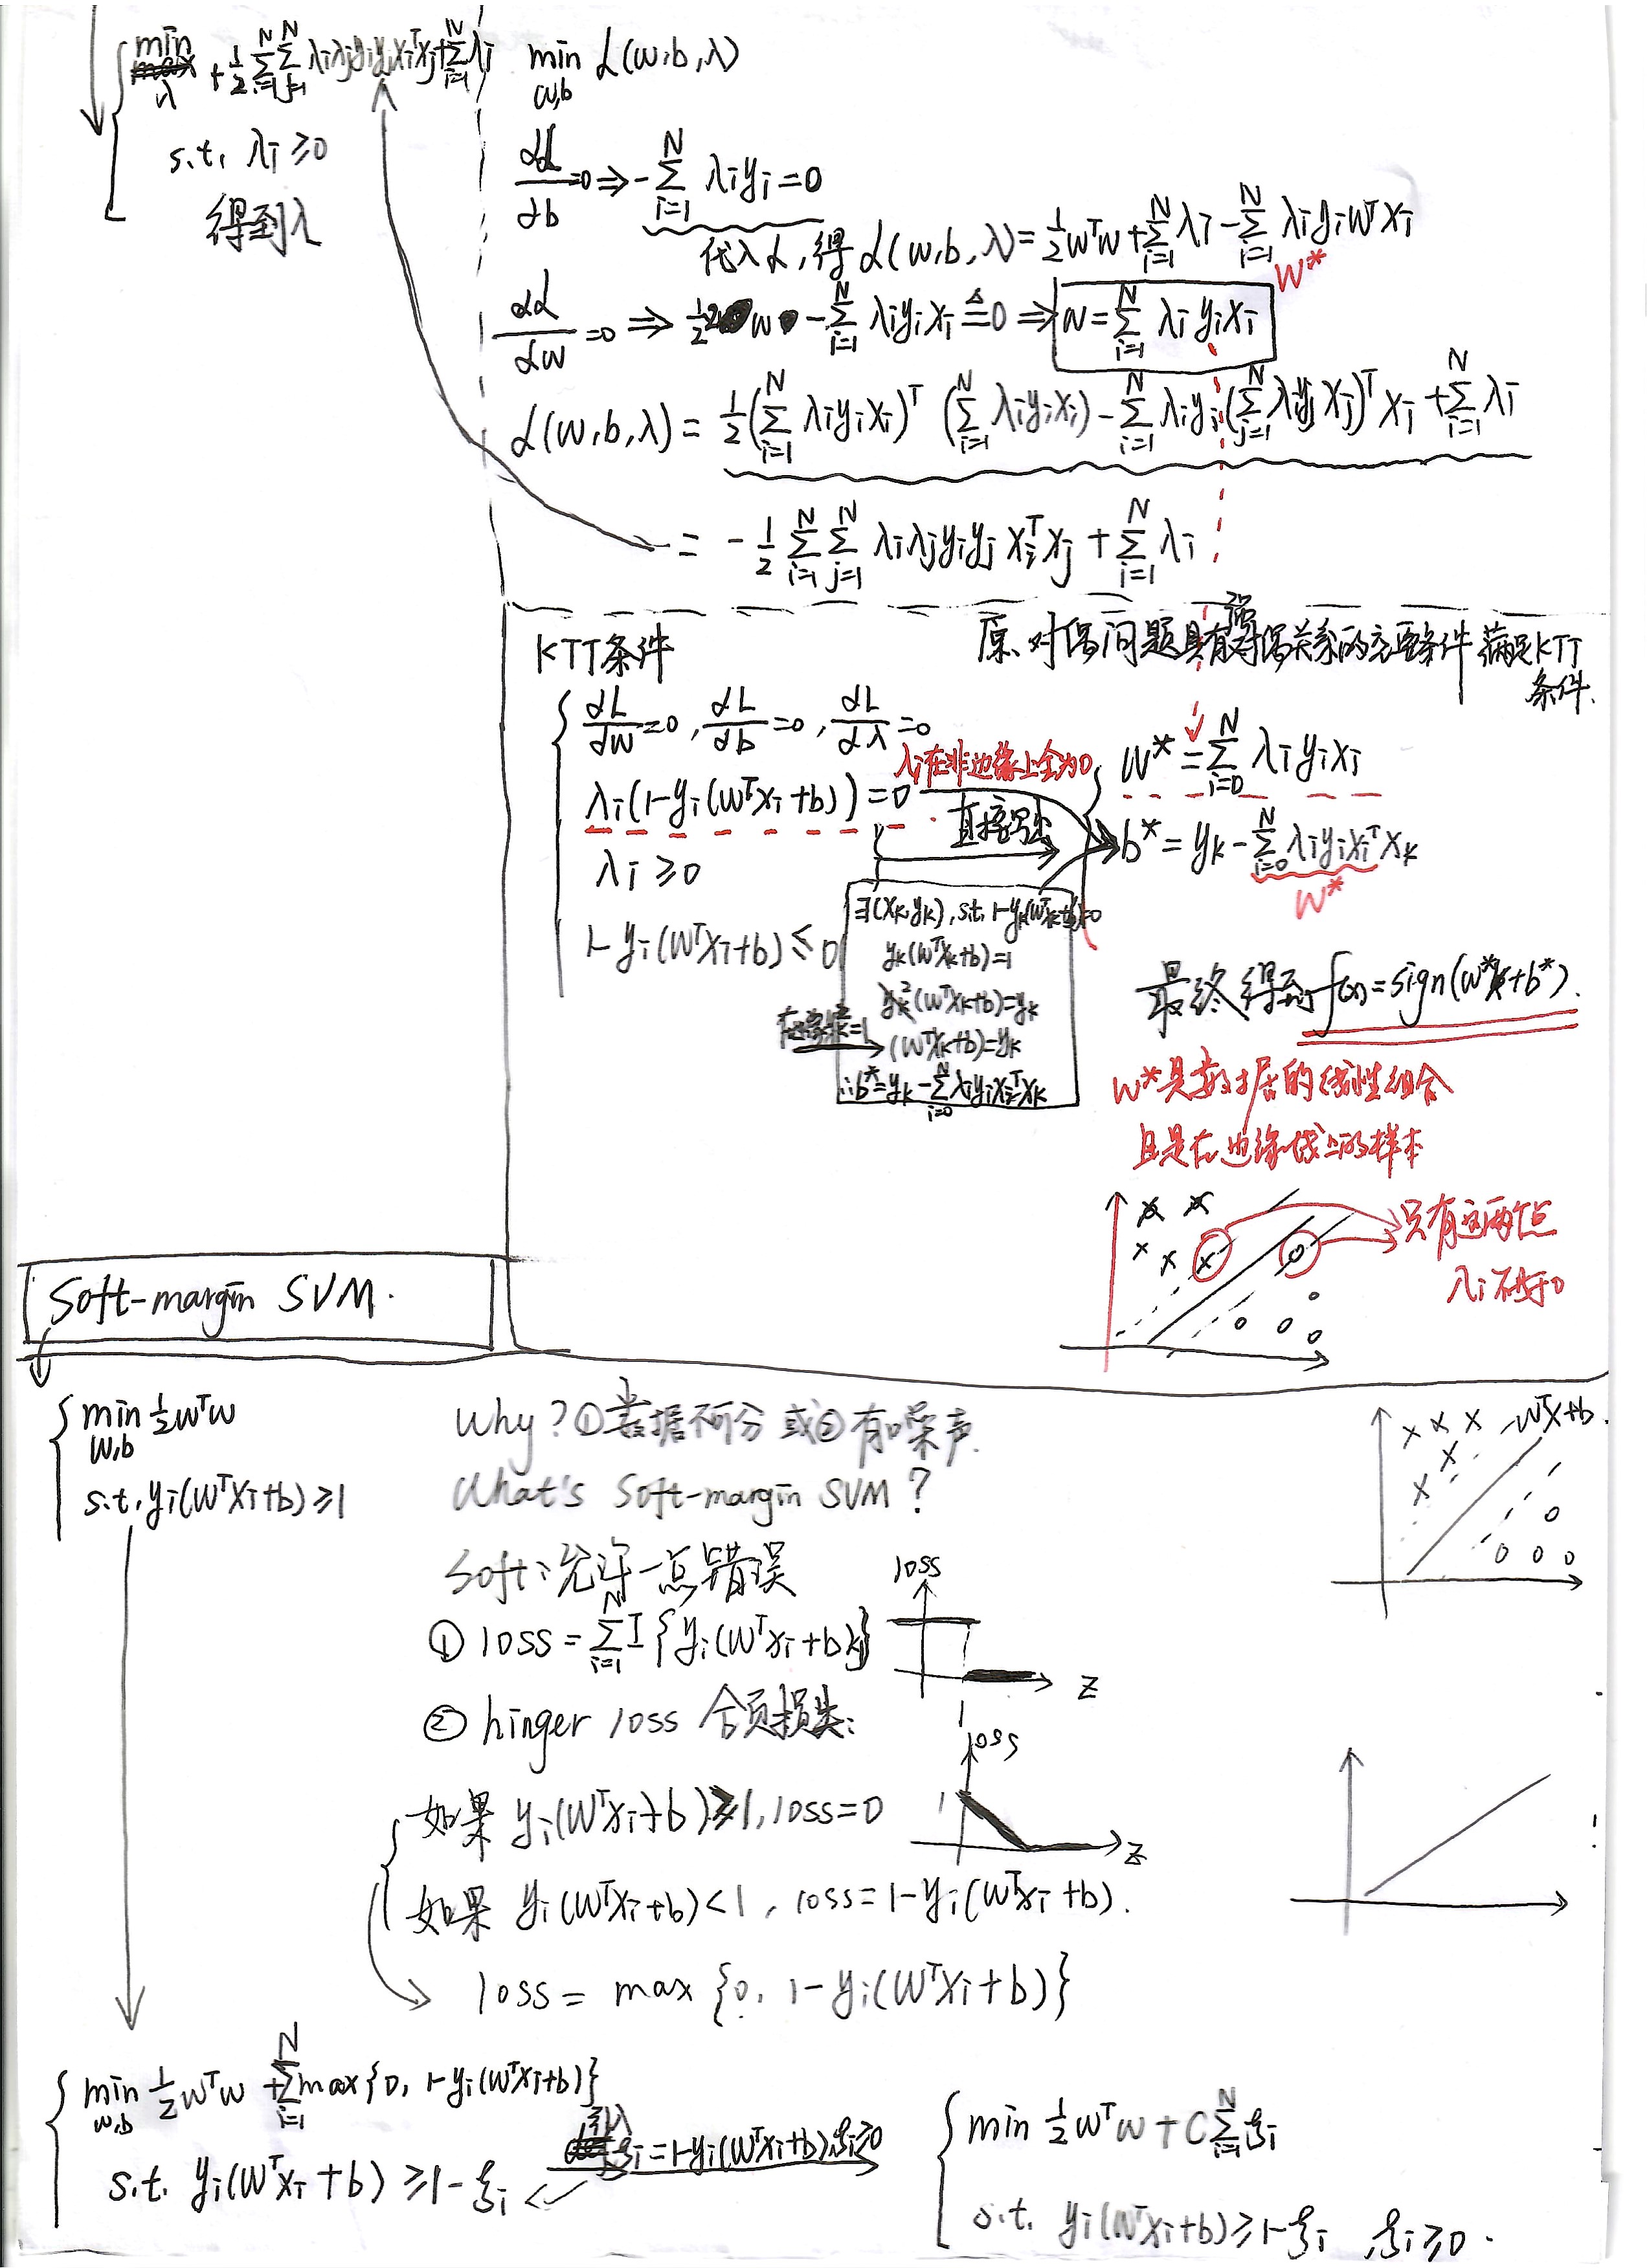 min
λ
+ 1/2 ∑_{i=1}^{N} ∑_{j=1}^{N} λiλjyiyjxiᵀxj + ∑_{i=1}^{N} λi
s.t. λi ≥ 0
得到λ
min_{w,b} L(w,b,λ)
∂L/∂b = 0 ⇒ -∑_{i=1}^{N} λiyi = 0
代入L,得 L(w,b,λ) = 1/2 wᵀw + ∑_{i=1}^{N} λi - ∑_{i=1}^{N} λiyiwᵀxi
∂L/∂w = 0 ⇒ 1/2·2 w - ∑_{i=1}^{N} λiyixi ≜ 0 ⇒ w = ∑_{i=1}^{N} λiyixi
w*
L(w,b,λ) = 1/2 (∑_{i=1}^{N} λiyixi)ᵀ (∑_{i=1}^{N} λiyixi) - ∑_{i=1}^{N} λiyi (∑_{j=1}^{N} λjyjxj)ᵀ xi + ∑_{i=1}^{N} λi
= -1/2 ∑_{i=1}^{N} ∑_{j=1}^{N} λiλjyiyj xiᵀxj + ∑_{i=1}^{N} λi
KTT条件
原、对偶问题具有强对偶关系的充要条件 满足KTT
条件.
∂L/∂w = 0, ∂L/∂b = 0, ∂L/∂λ = 0
λi(1-yi(wᵀxi+b)) = 0
λi ≥ 0
1-yi(wᵀxi+b) ≤ 0
λi在非边缘上全为0
直接写出
w* = ∑_{i=0}^{N} λiyixi
b* = yk - ∑_{i=0}^{N} λiyixiᵀxk
w*
∃(xk,yk), s.t. 1-yk(wᵀxk+b)=0
yk(wᵀxk+b)=1
yk²(wᵀxk+b)=yk
(wᵀxk+b)=yk
∴b*=yk-∑_{i=0}^{N} λiyixiᵀxk
最终得到 f(x)=sign(w*x+b*).
w*是数据的线性组合
且是在边缘线上的样本
只有这两个点
λi不为0
Soft-margin SVM.
min_{w,b} 1/2 wᵀw
s.t. yi(wᵀxi+b) ≥ 1
Why? ①数据不可分 或②有噪声.
What's Soft-margin SVM?
Soft: 允许一点错误
① loss = ∑_{i=1}^{N} I{yi(wᵀxi+b)<1}
loss
z
1
② hinger loss 合页损失:
loss
1
z
如果 yi(wᵀxi+b) ≥ 1, loss=0
如果 yi(wᵀxi+b) < 1, loss = 1-yi(wᵀxi+b).
loss = max {0, 1-yi(wᵀxi+b)}
wᵀx+b.
min_{w,b} 1/2 wᵀw + ∑_{i=1}^{N} max{0, 1-yi(wᵀxi+b)}
s.t. yi(wᵀxi+b) ≥ 1-ξi
引入
ξi = 1-yi(wᵀxi+b), ξi≥0
min 1/2 wᵀw + C∑_{i=1}^{N} ξi
s.t. yi(wᵀxi+b) ≥ 1-ξi, ξi ≥ 0.